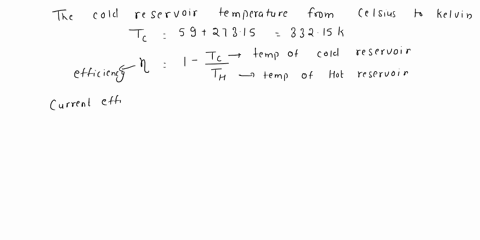 The cold reservoir temperature from Celsius to kelvin
Tc : 59 + 273.15 = 332.15 k
efficiency η : 1 - Tc/TH → temp of cold reservoir
→ temp of Hot reservoir
Current effi